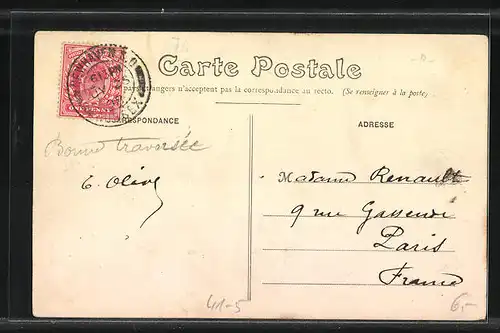 Carte Postale
pays étrangers n'acceptent pas la correspondance au recto. (Se renseigner à la poste)
CORRESPONDANCE
ADRESSE
NEWHAVEN S.O.
ONE PENNY
Bonne traversée
Madame Renault
9 rue Gassendi
Paris
France
41-5
6,-